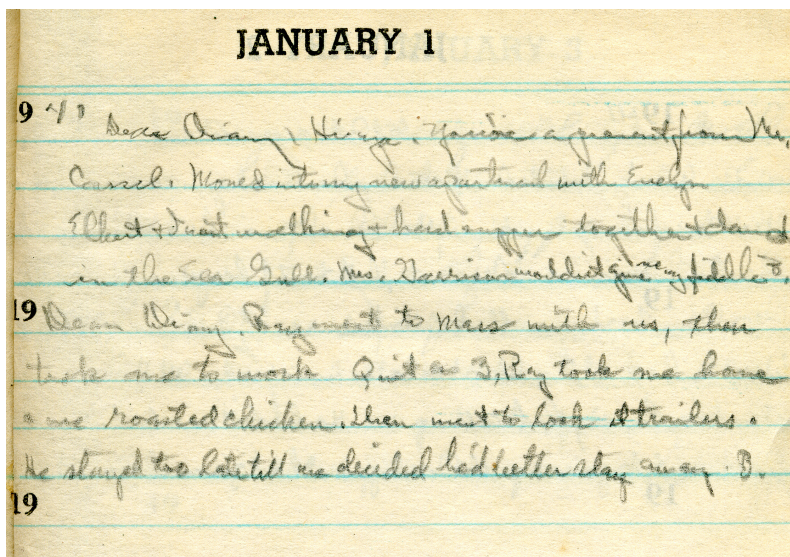 JANUARY 1
19 41 Dear Diary, Hiya. You're a present from Mr.
Cassel. Moved into my new apartment with Evelyn
Elbert & I went walking & had supper together & danced
in the Sea Gull. Mrs. Garrison wouldn't give me my fiddle
19 Dear Diary, Ray went to Mass with us, then
took me to work Quit at 3, Ray took me home
& we roasted chicken. Then went to look at trailers.
He stayed too late till we decided he'd better stay away. B.
19